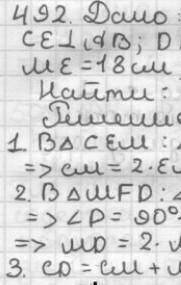 492. Дано:
CE⊥AB; D
ME=18см
Найти:
Решение
1. В△CEM:∠
=> CM=2·E
2. В△MFD:∠
=>∠D=90°
=> MD=2·
3. CD=CM+